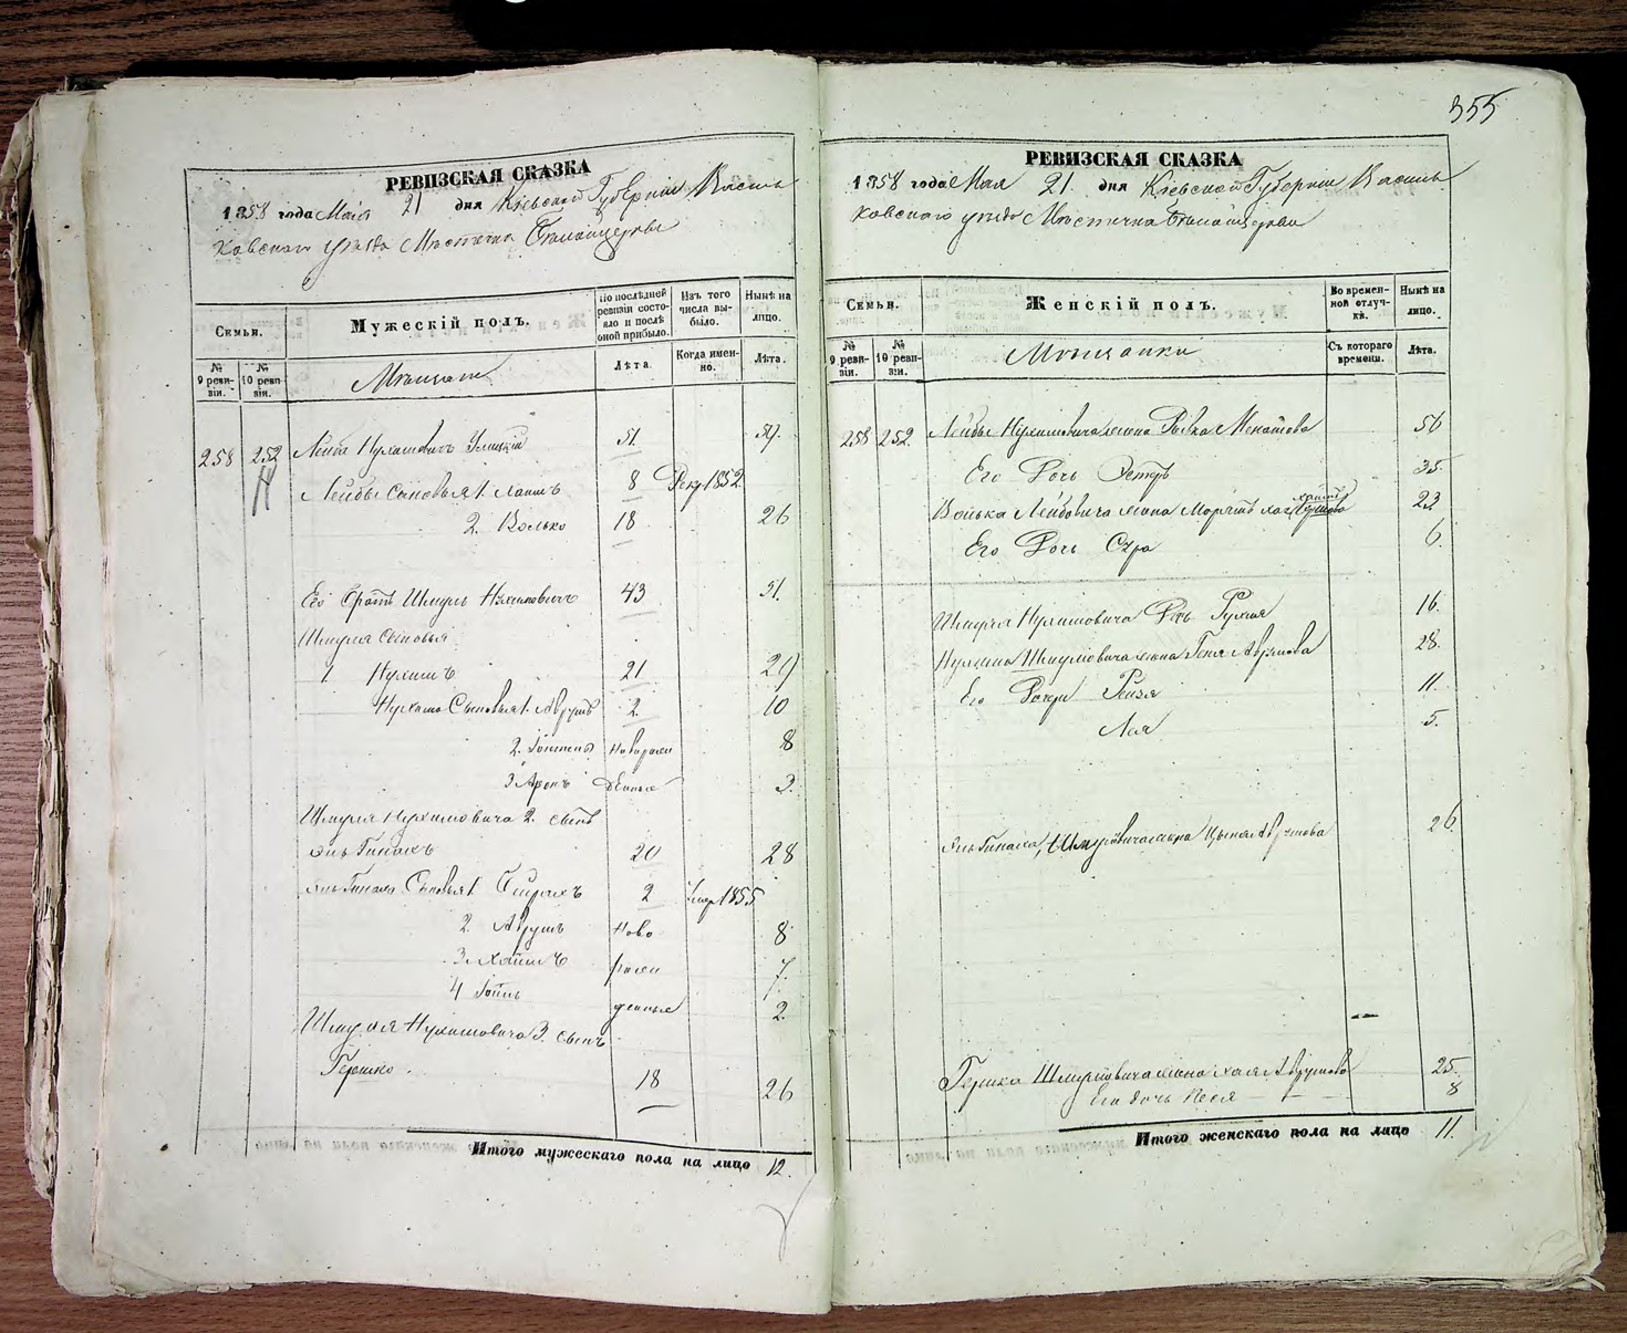 355
РЕВИЗСКАЯ СКАЗКА
1858 года Мая 21 дня Кіевской Губерніи Василь
ковскаго уезда Местечка Белойцеркви
Семьи.
Мужескій полъ.
По послѣдней ревизіи состояло и послѣ оной прибыло.
Изъ того числа выбыло.
Нынѣ на лицо.
№ 9 ревизіи.
№ 10 ревизіи.
Мещане
Лѣта
Когда именно.
Лѣта.
258 252 Лейба Нухимовичъ 51. 59.
Лейбы сыновья 1. Хаимъ 8 Рекр 1852
2. Волько 18 26
Его братъ Шмуль Нухимовичъ 43 51.
Шмуля сыновья
1 Нухимъ 21 29
Нухима Сыновья 1. Аврумъ 2. 10
2. новорож 8
3 Аронъ денные 3.
Шмуля Нухимовича 2. сынъ
20 28
Сыновья 1. 2 умер 1855
2. Аврумъ ново 8
3. Хаимъ рож 7.
4 денные 2.
Шмуля Нухимовича 3. сынъ
Гершко. 18 26
Итого мужескаго пола на лицо 12.
РЕВИЗСКАЯ СКАЗКА
1858 года Мая 21. дня Кіевской Губерніи Василь
ковскаго уезда Местечка Белойцеркви
Семьи.
Женскій полъ.
Во временной отлучкѣ.
Нынѣ на лицо.
№ 9 ревизіи.
№ 10 ревизіи.
Мещанки
Съ котораго времени.
Лѣта.
258 252. Лейбы Нухимовича жена Рывка 56
Его Дочь Эстеръ 35.
Волька Лейбовича жена 23
Его Дочь Сура 6.
Шмуля Нухимовича Дочь Рухля 16.
Нухима Шмулевича жена Геня Аврумова 28.
Его Дочери Рейзя 11.
Лея 5.
Шмулевича жена Аврумова 26.
Гершка Шмулевича жена Хая Аврумова 25.
Его дочь Песя 8
Итого женскаго пола на лицо 11.